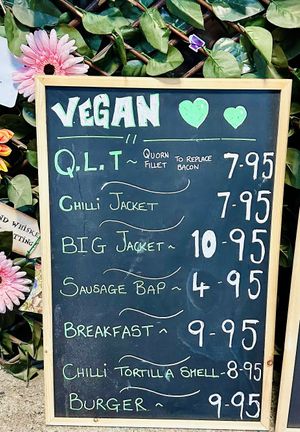 VEGAN
Q.L.T~ QUORN FILLET TO REPLACE BACON 7-95
CHILLI JACKET 7-95
BIG JACKET~ 10-95
SAUSAGE BAP~ 4-95
BREAKFAST~ 9-95
CHILLI TORTILLA SHELL-8-95
BURGER~ 9-95
ND WHISKE
TTING